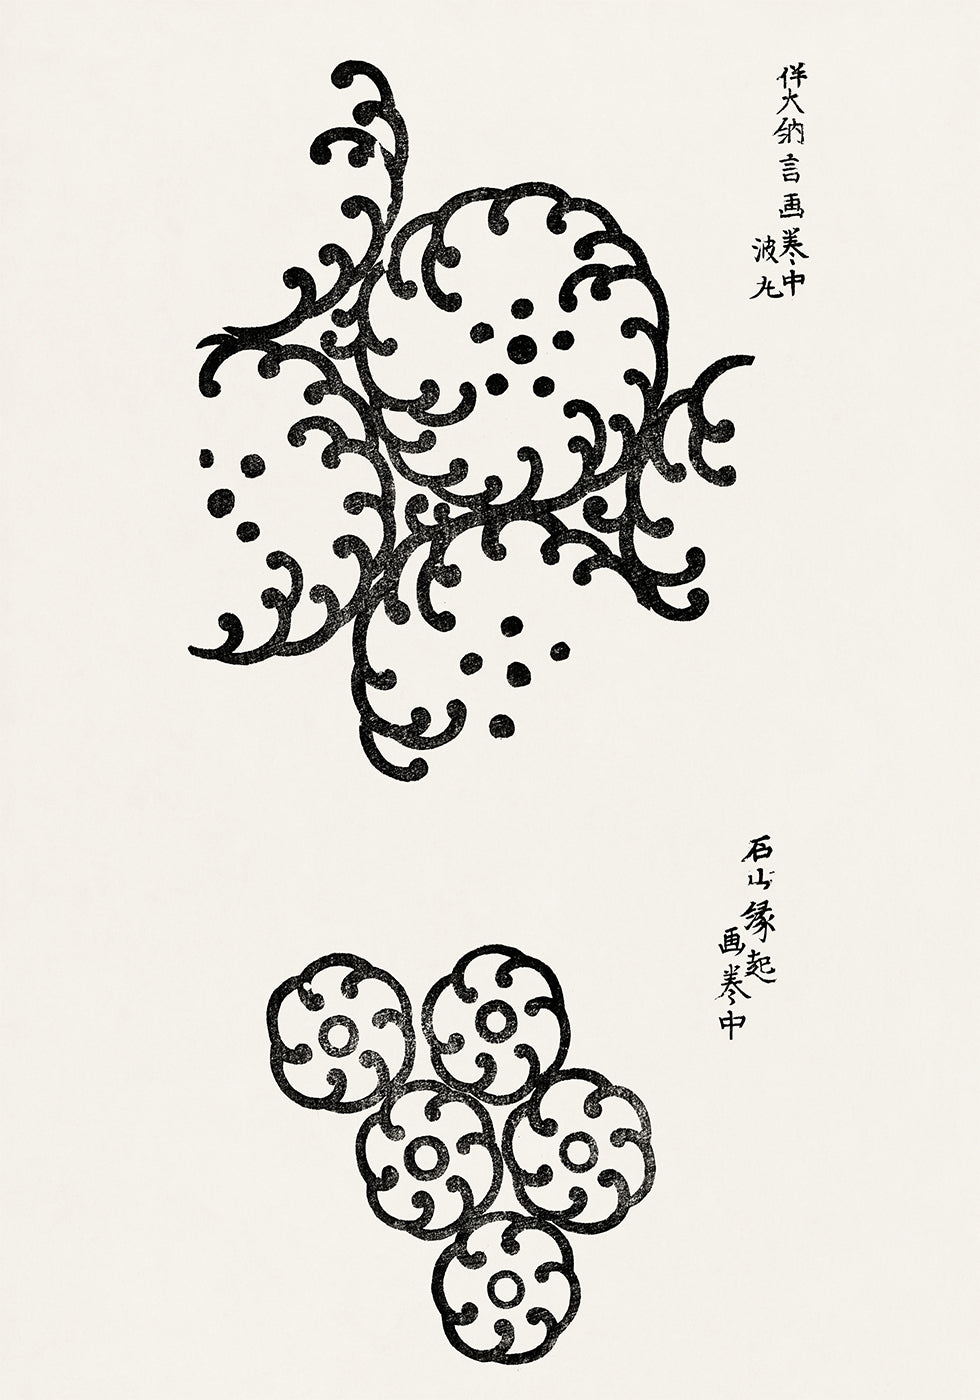 伴大納言画巻中
波丸
石山縁起
画巻中